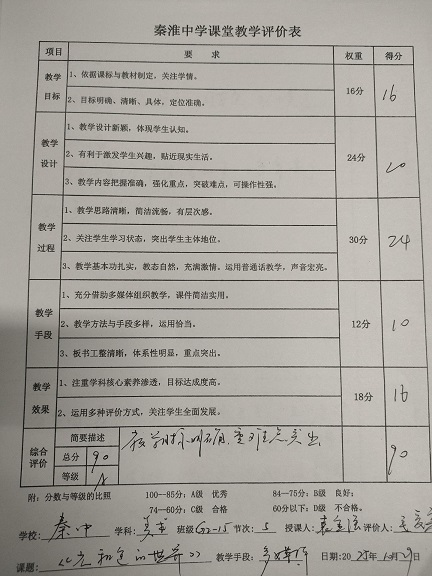 秦淮中学课堂教学评价表
项目 要 求 权重 得分
教学目标 1、依据课标与教材制定，关注学情。 16分 16
2、目标明确、清晰、具体，定位准确。
教学设计 1、教学设计新颖，体现学生认知。 24分 20
2、有利于激发学生兴趣，贴近现实生活。
3、教学内容把握准确，强化重点，突破难点，可操作性强。
教学过程 1、教学思路清晰，简洁流畅，有层次感。 30分 24
2、关注学生学习状态，突出学生主体地位。
3、教学基本功扎实，教态自然，充满激情。运用普通话教学，声音宏亮。
教学手段 1、充分借助多媒体组织教学，课件简洁实用。 12分 10
2、教学方法与手段多样，运用恰当。
3、板书工整清晰，体系性明显，重点突出。
教学效果 1、注重学科核心素养渗透，目标达成度高。 18分 16
2、运用多种评价方式，关注学生全面发展。
综合评价 简要描述 教学目标明确，重难点突出 90
总分 90
等级 A
附：分数与等级的比照 100—85分：A级 优秀 84—75分：B级 良好；
74—60分：C级 合格 60分以下：D级 不合格。
学校：秦中 学科：美术 班级 节次：5 授课人： 评价人：
课题：《光和色的世界》 教学手段：多媒体 日期:20 25年 月 9日